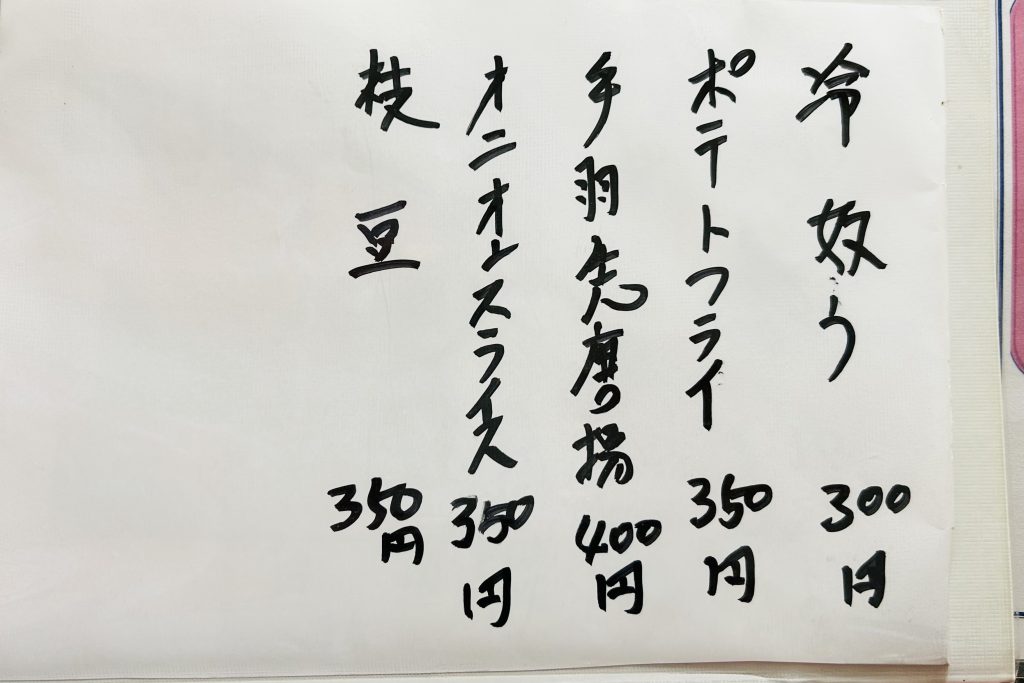 冷奴う 300円
ポテトフライ 350円
手羽先 揚 400円
オニオンスライス 350円
枝豆 350円